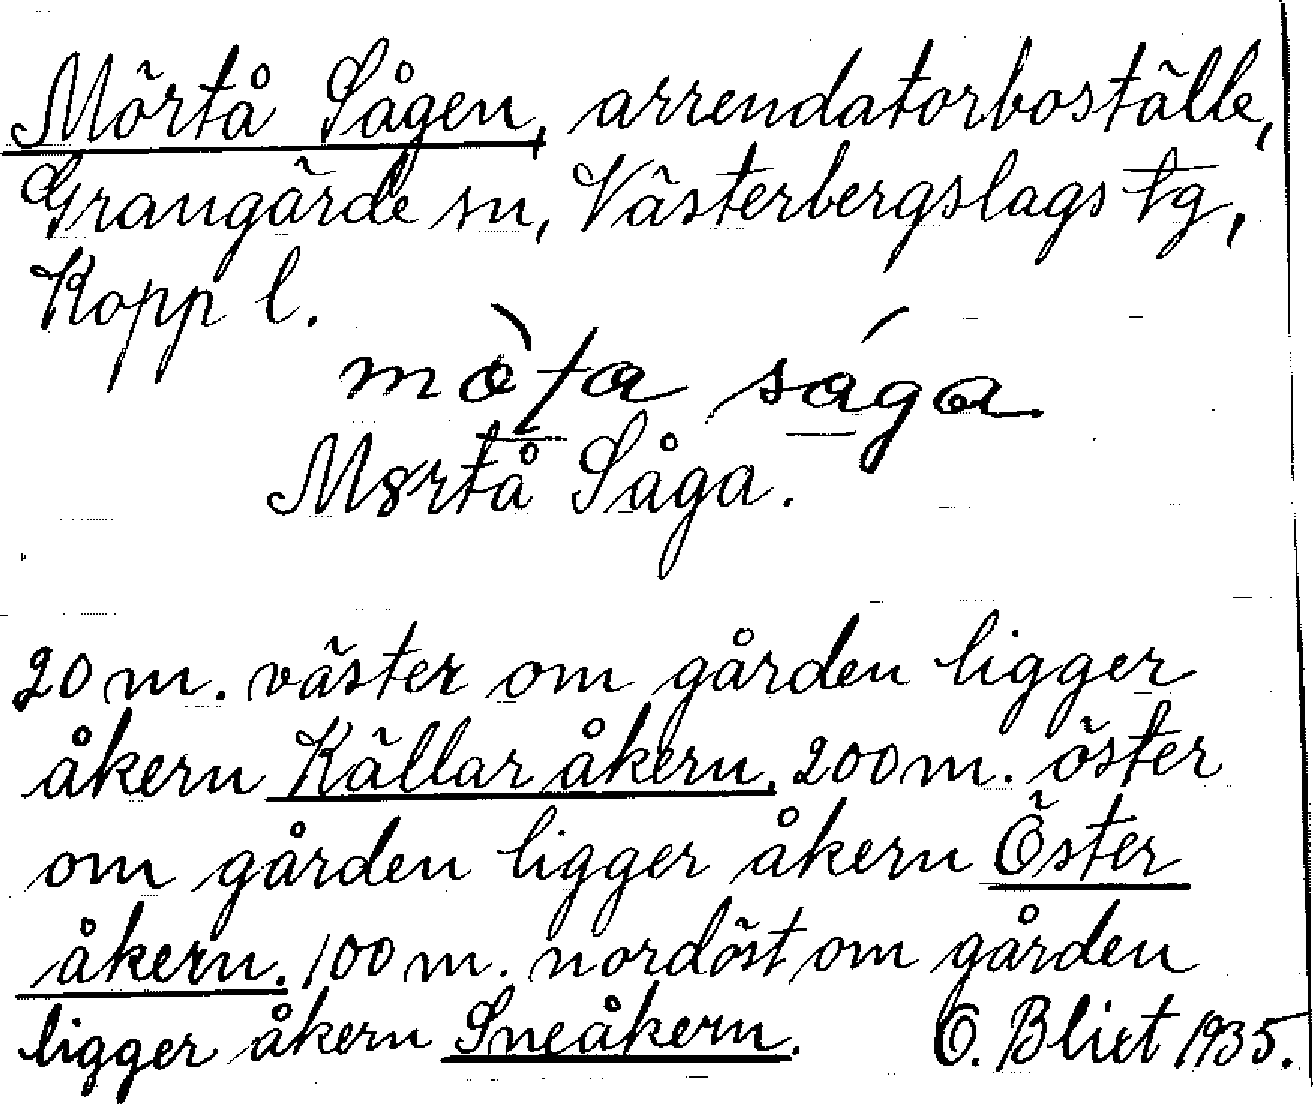 Mörtå Sågen, arrendatorboställe,
Grangärde sn, Västerbergslags tg,
Kopp l.
såga
Mörtå Såga.
20 m. väster om gården ligger
åkern Källar åkern. 200 m. öster
om gården ligger åkern Öster
åkern. 100 m. nordöst om gården
ligger åkern Sneåkern. O. Blixt 1935.